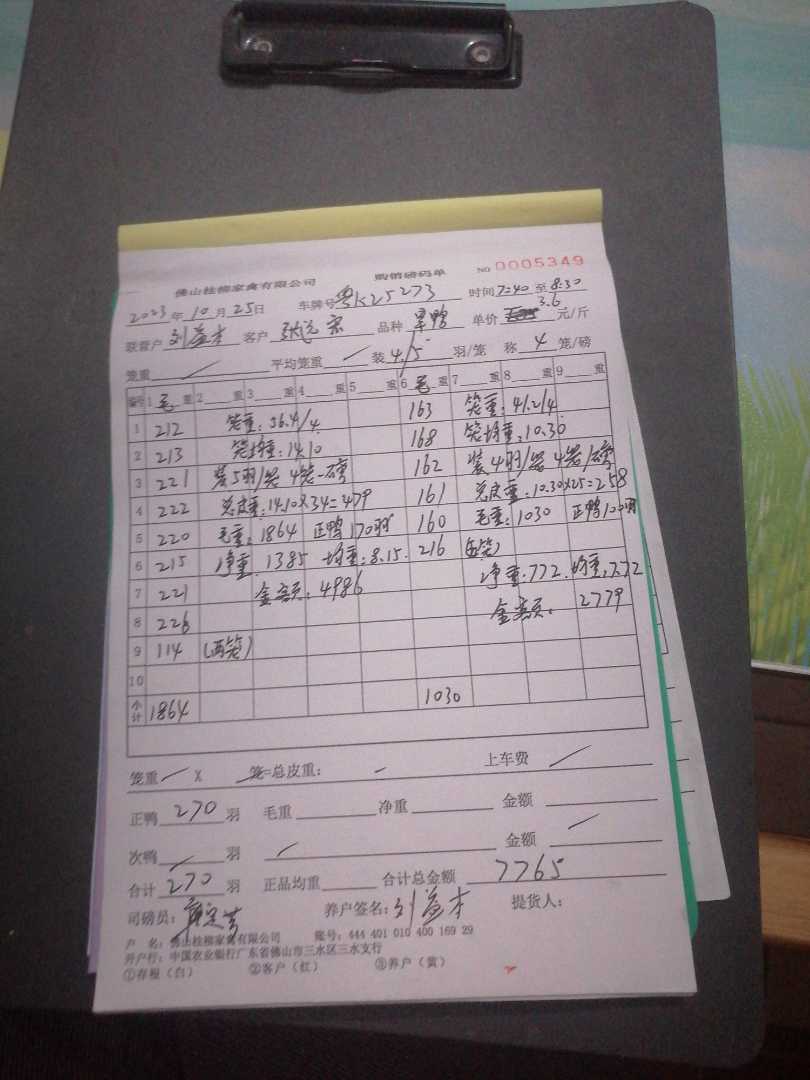 佛山桂柳家禽有限公司 购销磅码单 NO 0005349
2023年10月25日 车牌号 粤K25273 时间 7:40 至 8:30
联营户 刘益才 客户 品种 单价 3.6 元/斤
笼重 / 平均笼重 / 装 4/5 羽/笼 称 4 笼/磅
编号 1 毛 重 2 重 3 重 4 重 5 重 6 毛 重 7 重 8 重 9 重
1 212 笼重:56.4/4. 163 笼重:41.2/4.
2 213 笼均重:14.10 168 笼均重:10.30.
3 221 装5羽/笼 4笼一磅 162 装4羽/笼 4笼/磅
4 222 总皮重:14.10×34=479 161 总皮重:10.30×25=258
5 220 毛重:1864 正鸭170羽 160 毛重:1030 正鸭100羽
6 215 净重.1385 均重:8.15. 216 (5笼)
7 221 金额:4986 净重.772.均重:7.72
8 226 金额: 2779
9 114 (两笼)
10
小计 1864 1030
笼重 / X 笼=总皮重: - 上车费 /
正鸭 270 羽 毛重 净重 金额
次鸭 / 羽 / 金额 /
合计 270 羽 正品均重 合计总金额 7765
司磅员: 养户签名:刘益才 提货人:
户 名:佛山桂柳家禽有限公司 账号:444 401 010 400 169 29
开户行:中国农业银行广东省佛山市三水区三水支行
①存根(白) ②客户(红) ③养户(黄)